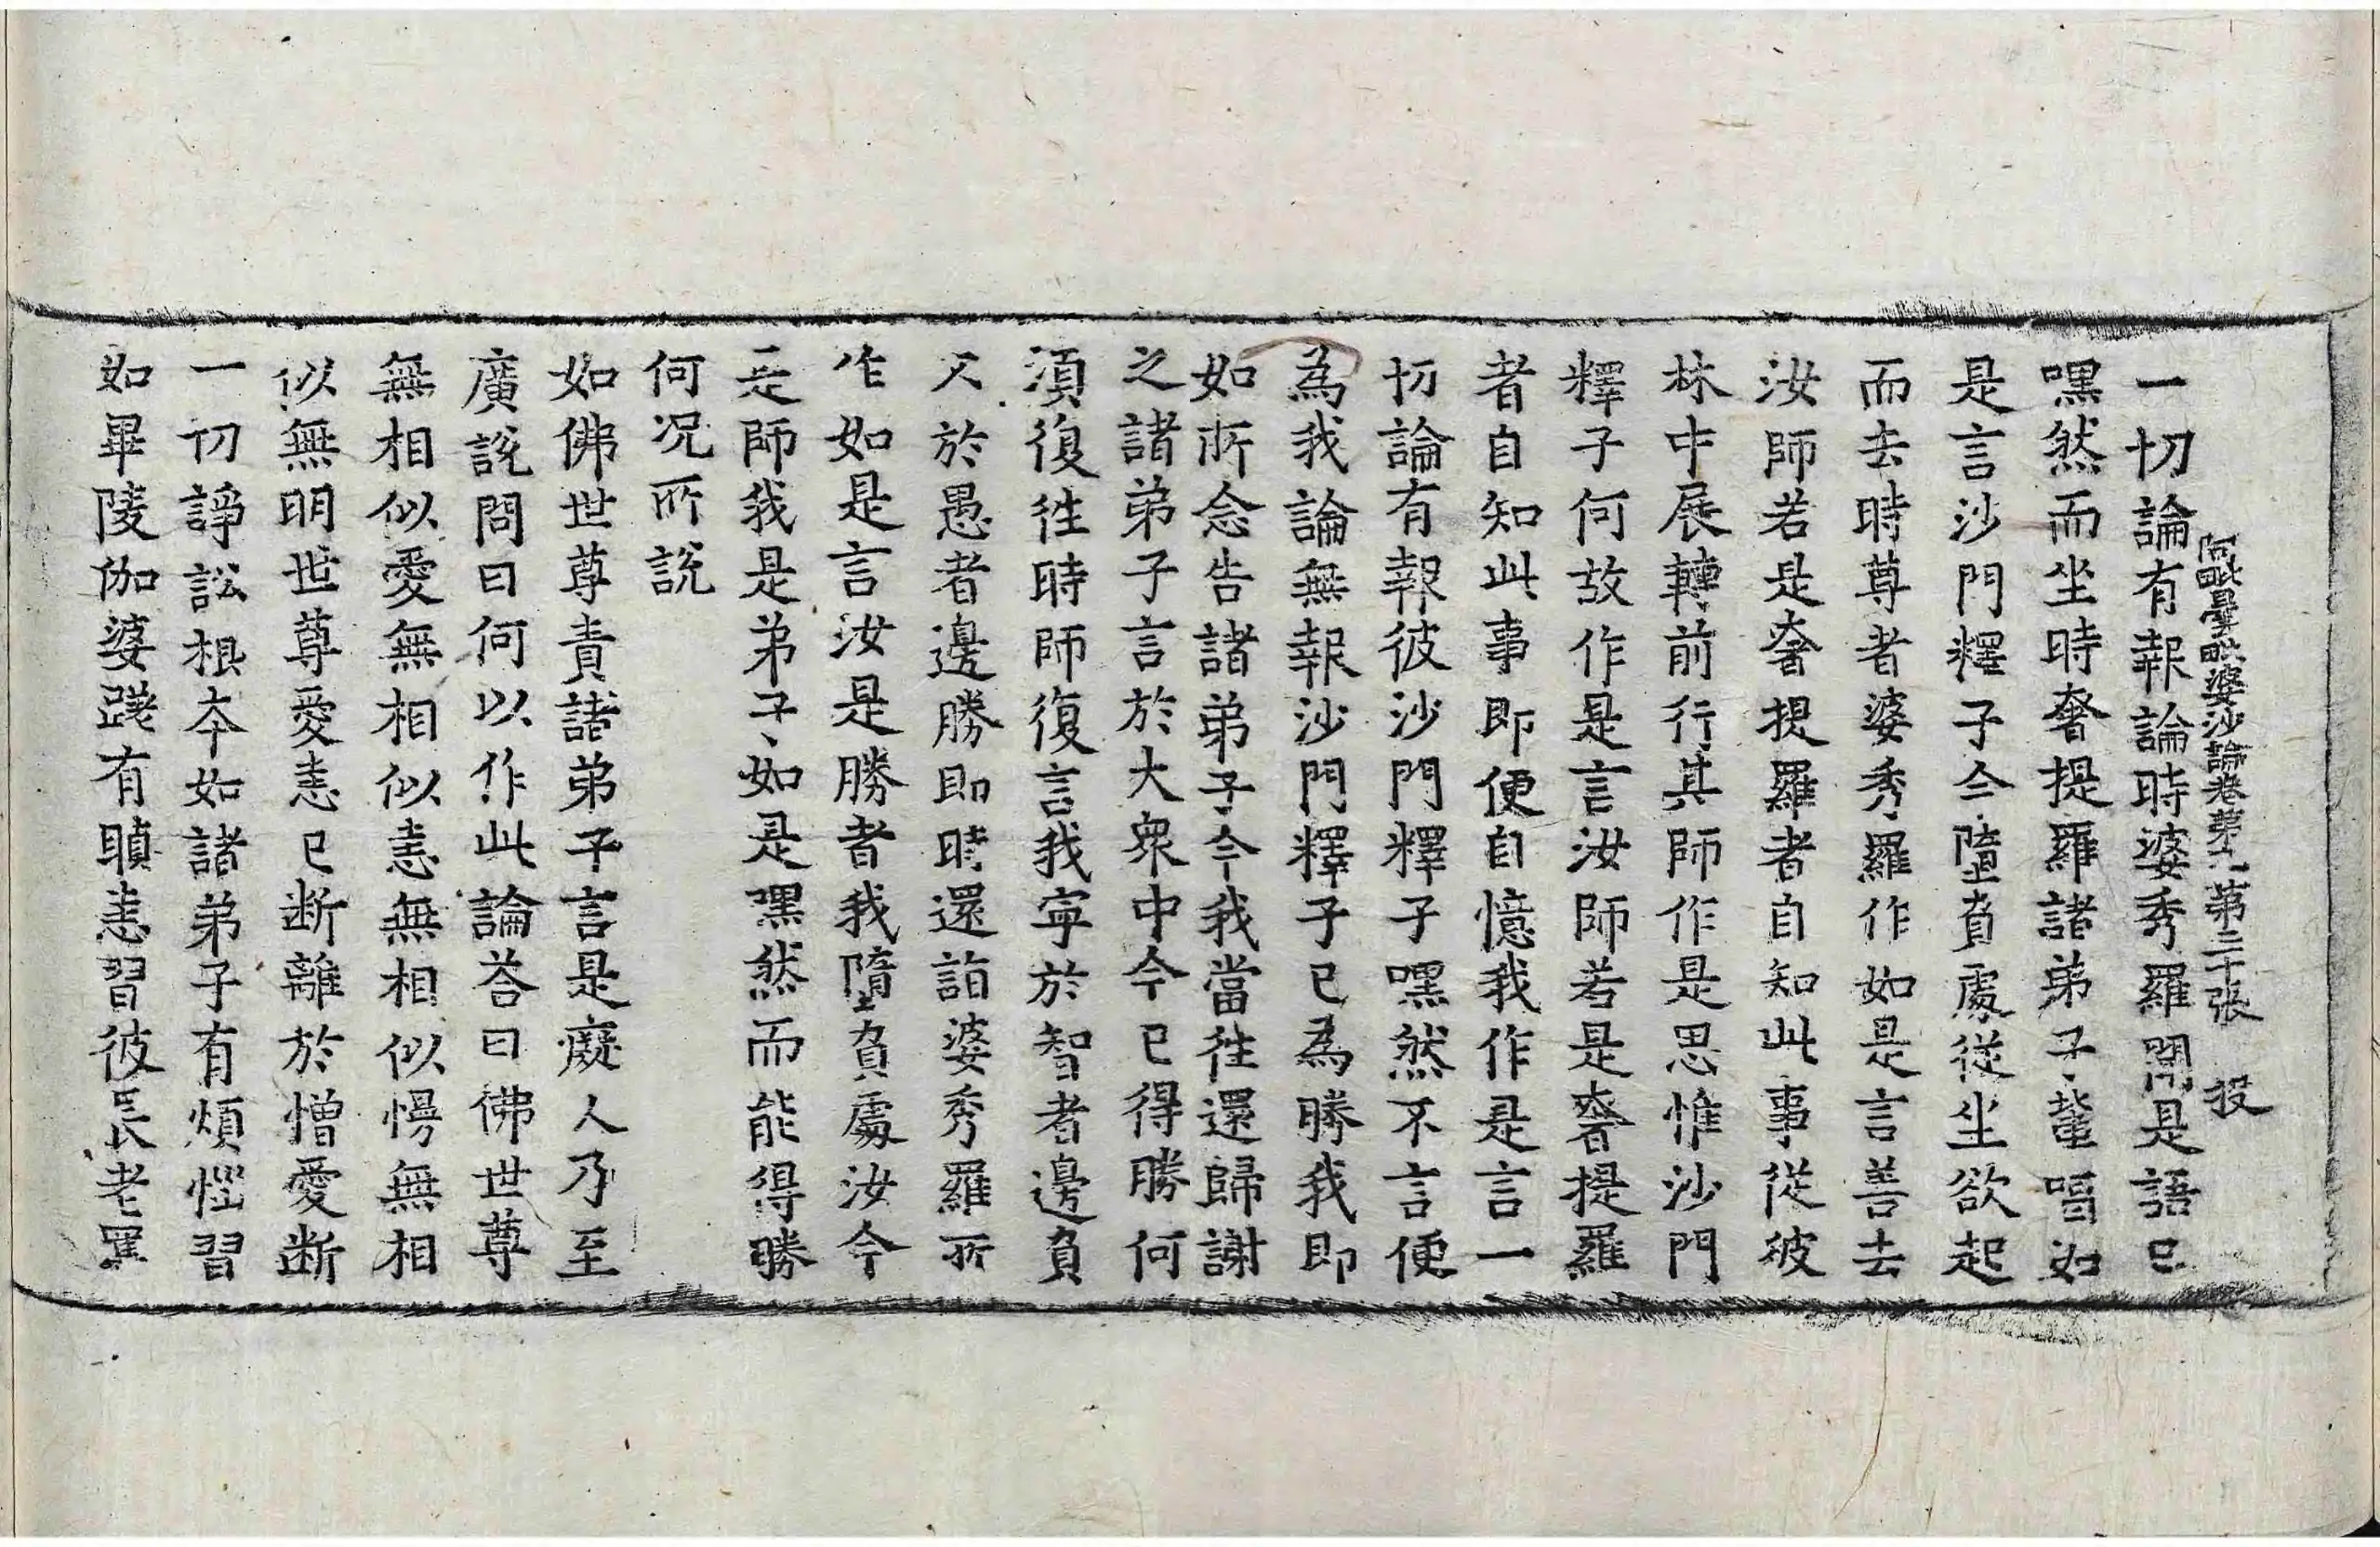 阿毗曇毗婆沙論卷第九 第三十張 投
一切論有報論時婆秀羅聞是語已
嘿然而坐時奢提羅諸弟子輩唱如
是言沙門釋子今墮負處從坐欲起
而去時尊者婆秀羅作如是言善去
汝師若是奢提羅者自知此事從彼
林中展轉前行其師作是思惟沙門
釋子何故作是言汝師若是奢提羅
者自知此事即便自憶我作是言一
切論有報彼沙門釋子嘿然不言便
為我論無報沙門釋子已為勝我即
如所念告諸弟子今我當往還歸謝
之諸弟子言於大眾中今已得勝何
須復往時師復言我寧於智者邊負
不於愚者邊勝即時還詣婆秀羅所
作如是言汝是勝者我墮負處汝今
是師我是弟子如是嘿然而能得勝
何況所說
如佛世尊責諸弟子言是癡人乃至
廣說問曰何以作此論荅曰佛世尊
無相似愛無相似恚無相似慢無相
似無明世尊愛恚已断離於憎愛断
一切諍訟根本如諸弟子有煩惱習
如畢陵伽婆蹉有瞋恚習彼長老罵